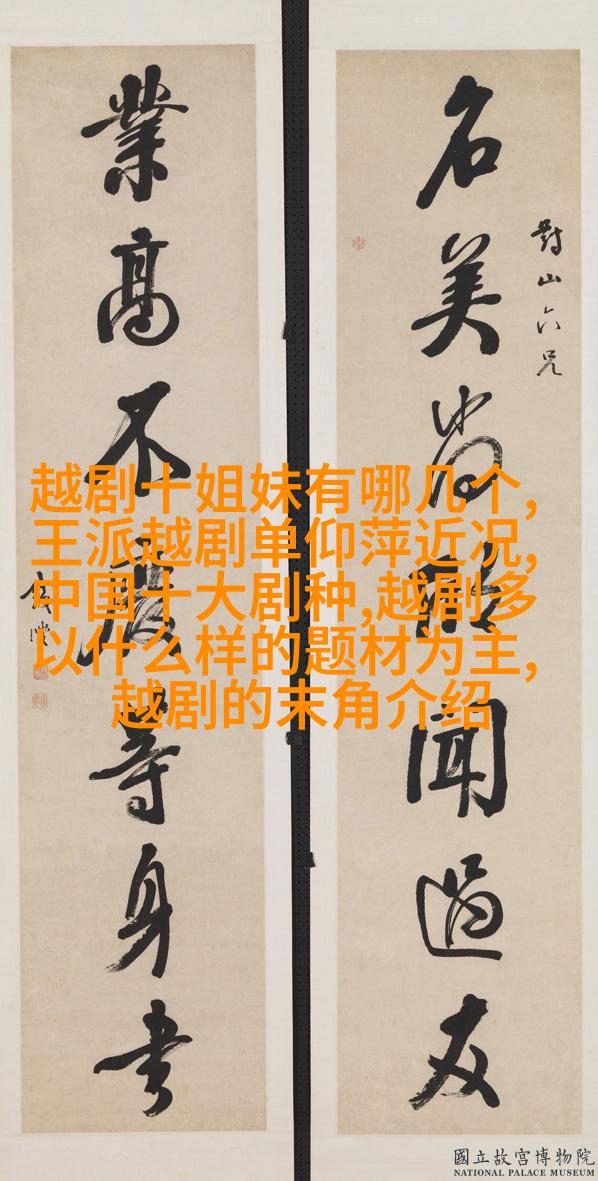 對山六兄
名美尚欣聞過友
業高不廢等身書
越剧十姐妹有哪几个,
王派越剧单仰萍近况,
中国十大剧种,越剧多
以什么样的题材为主,
越剧的末角介绍
國立故宮博物院
NATIONAL PALACE MUSEUM